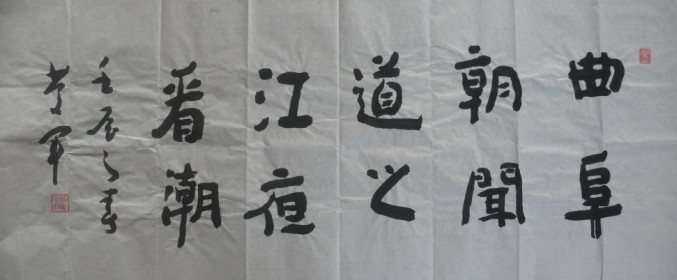 曲阜
朝聞
道之
江夜
看潮
壬辰之春
軍